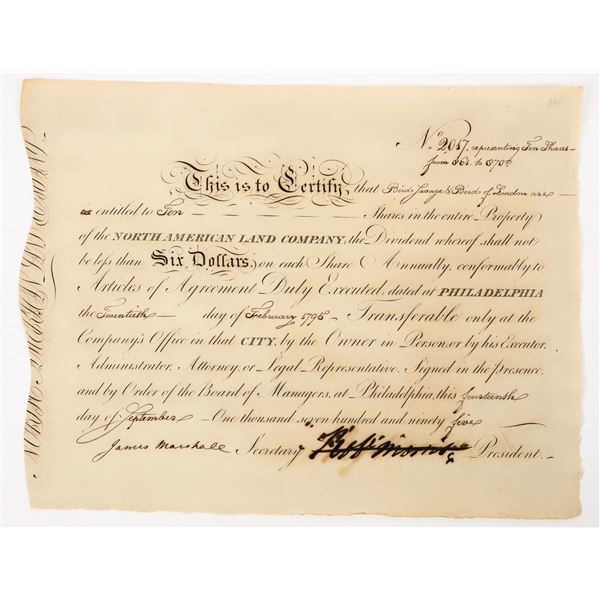 No. 2047 representing Ten Shares
from 861 to 870
This is to Certify, that Bird, Savage & Bird of London are
entitled to Ten Shares in the entire Property
of the NORTH AMERICAN LAND COMPANY, the Dividend whereof shall not
be less than Six Dollars, on each Share Annually, conformably to
Articles of Agreement Duly Executed, dated at PHILADELPHIA
the Twentieth day of February 1795 Transferable only at the
Company's Office in that CITY, by the Owner in Person, or by his Executor,
Administrator, Attorney, or Legal Representative. Signed in the presence
and by Order of the Board of Managers, at Philadelphia, this fourteenth
day of September One thousand seven hundred and ninety five
James Marshall Secretary Robt Morris President.